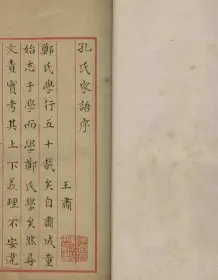 孔氏家語序
王肅
鄭氏學行五十載矣自肅成童
始志于學而學鄭氏學矣然尋
文責實考其上下義理不安違